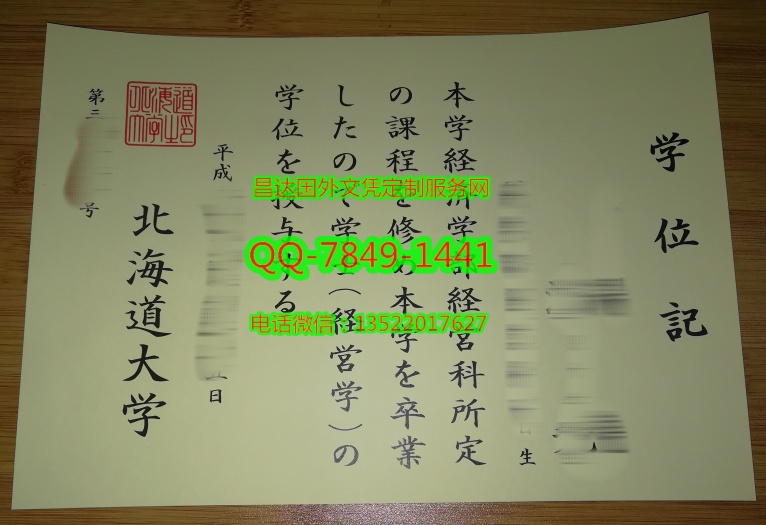 学位記
生
本学経済学部経営科所定
の課程を修め本学を卒業
したので学士(経営学)の
学位を授与する
平成
日
北海道大学
第三
号
昌达国外文凭定制服务网
QQ-7849-1441
电话微信：13522017627